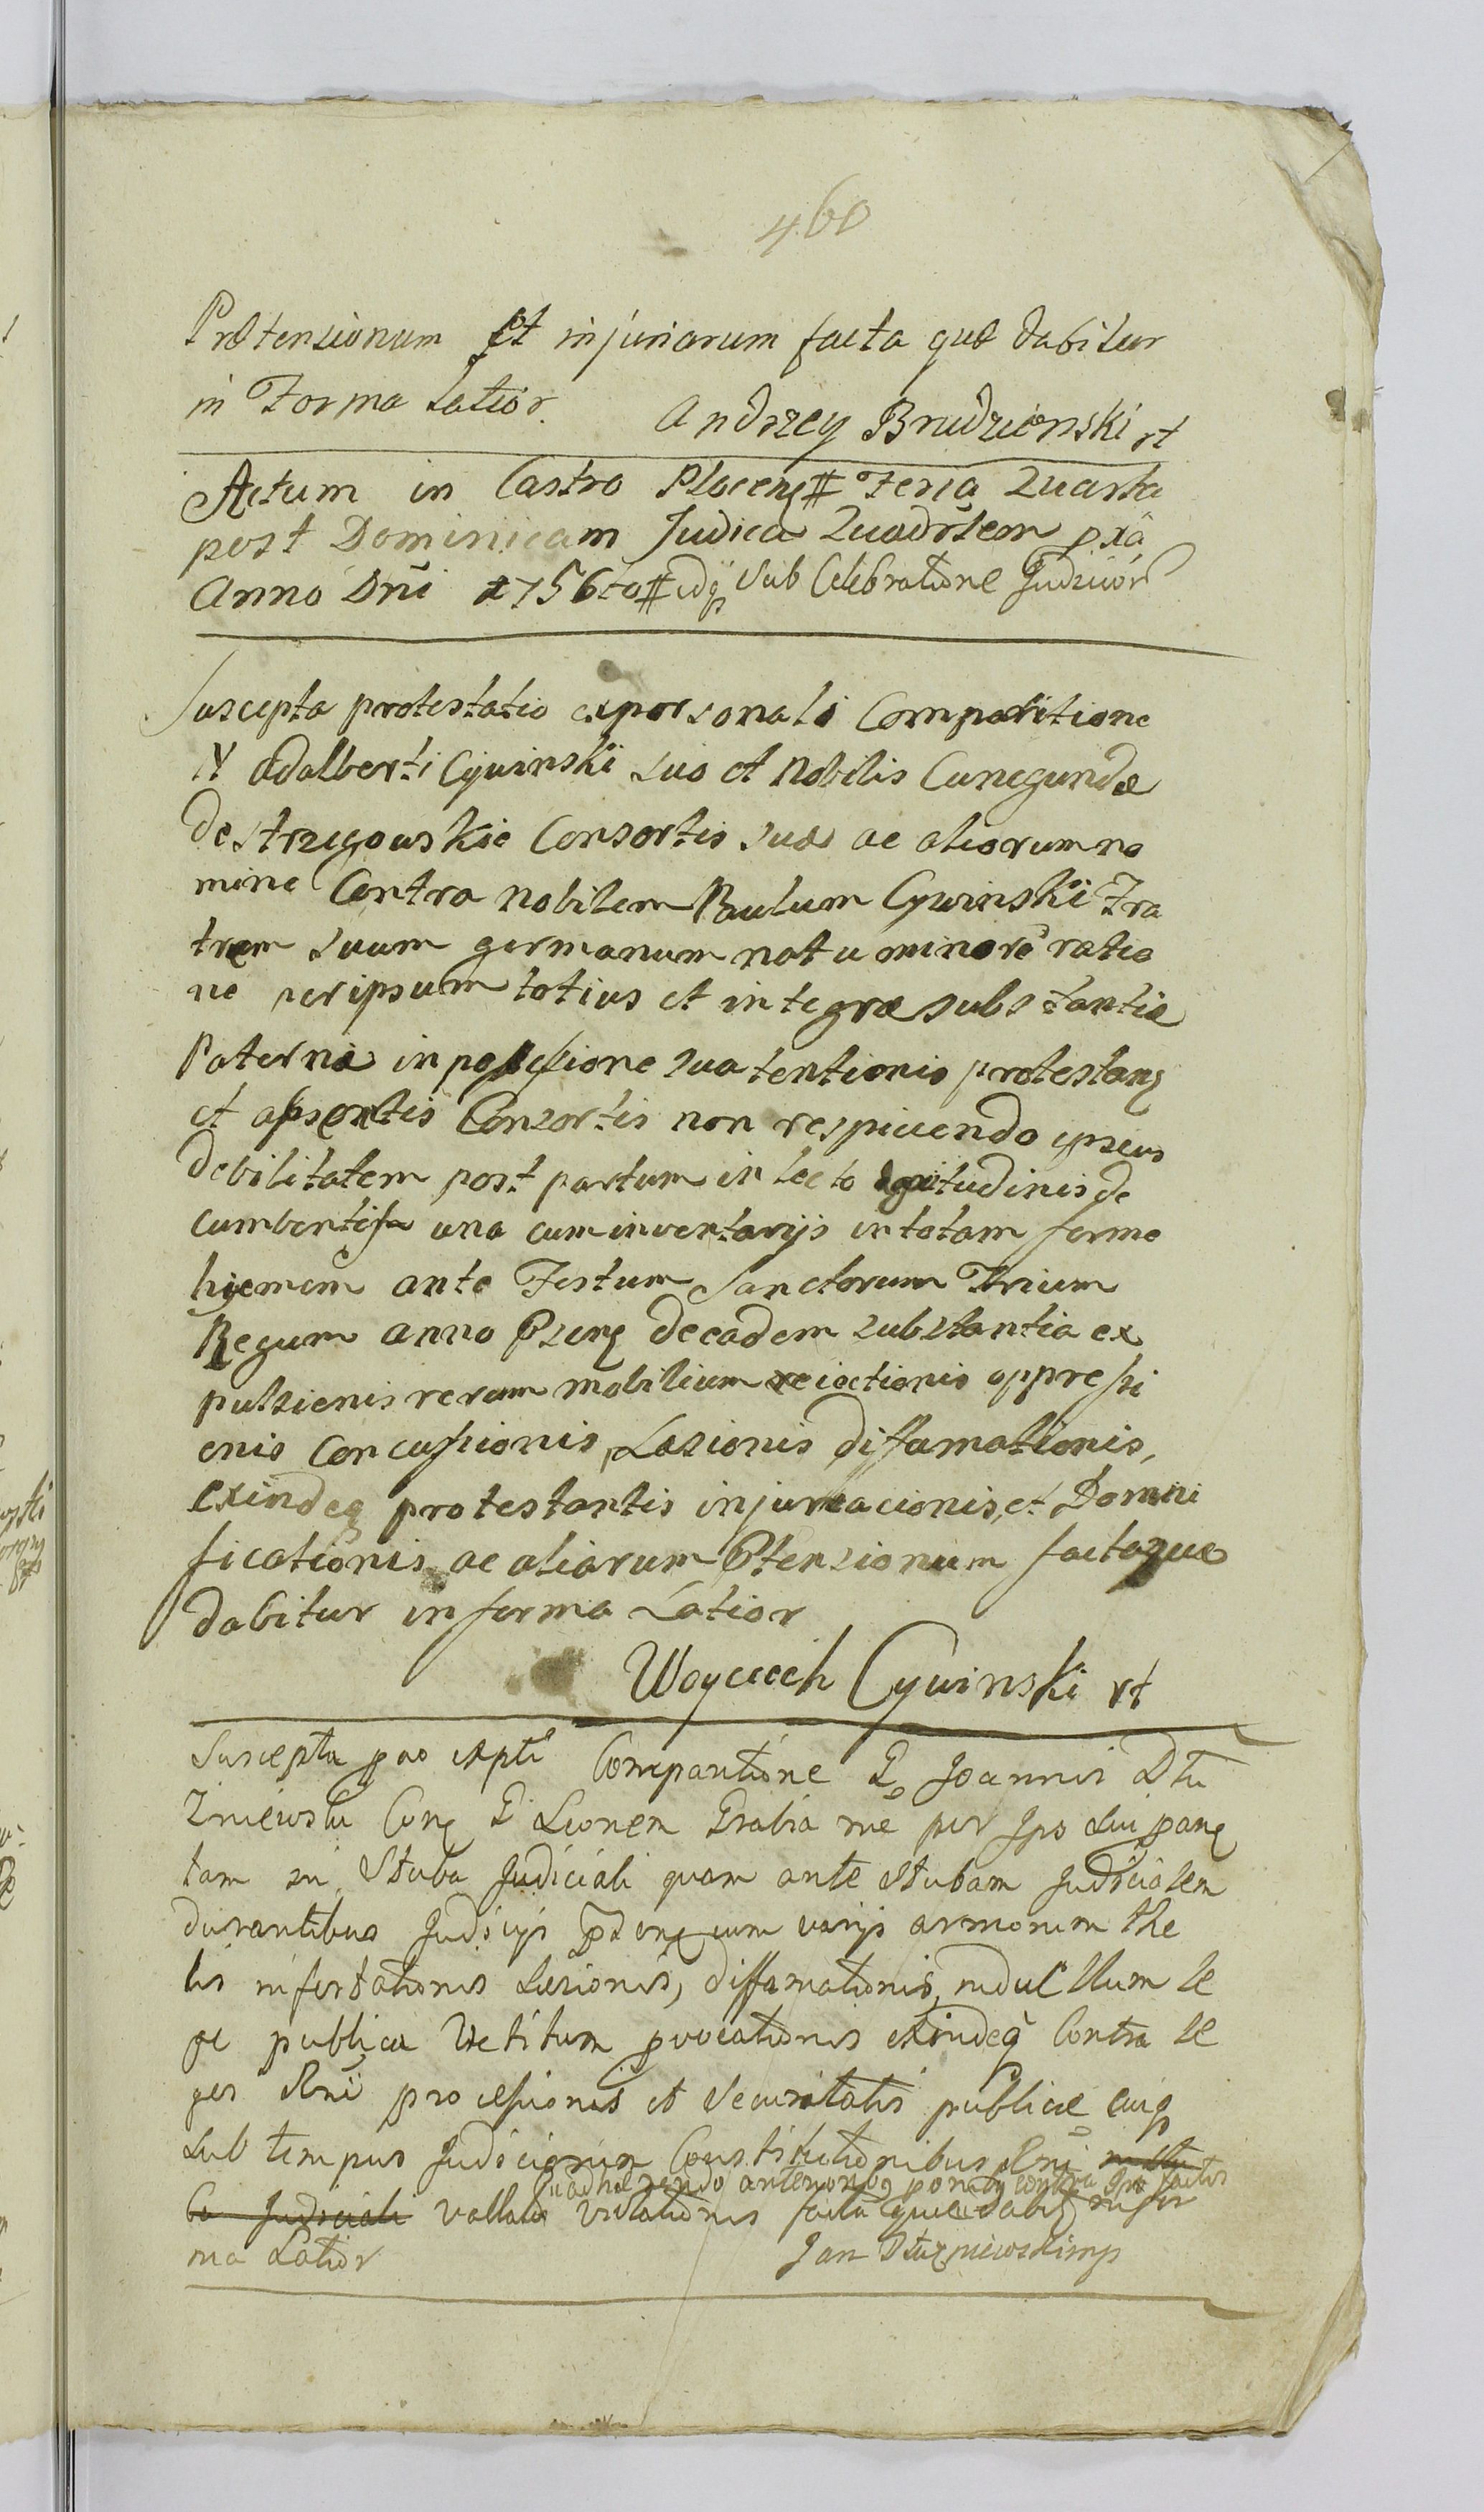 460
Prætensionum Et injuriarum facta quæ dabitur
in Forma Latior.
Andrzey Brudzienski
Actum in Castro Plocen# Feria Quarta
post Dominicam Judica Quadrlem pxa
Anno Dni 1756to # idq sub Celebratione Judicior
Suscepta protestatio ex personali Comparitione
N Adalberti Cywinski suo et Nobilis Cunegundæ
de Strzegowskie Consortis suæ ac aliorum no
mine Contra Nobilem Paulum Cywinski Fra
trem suum germanum natu minore ratio
ne per ipsum totius et integræ substantiæ
Paternæ in possessione sua tentionis protestanq
et absentis Consortis non respiciendo ipsius
debilitatem post partum in lecto ægritudinis de
cumbentis una cum inventarijs in totam ferme
hyemem ante Festum Sanctorum Trium
Regum anno Psenq de eadem substantia ex
pulsionis rerum mobilium reiectionis oppressi
onis concussionis, Læsionis diffamationis,
exindeq protestantis injuriacionis, et Damni
ficationis ac aliarum Ptensionum facta quæ
dabitur in forma Latior
Woyciech Cywinski
Suscepta Comparitione G Joannis Dłu
zniewski Conq G Leonem Grabia per Ipo sui
tam in Stuba Judiciali quam ante Stubam Judicialem
durantibus Judicijs cum varijs armorum the
lis infestationis Læsionis, diffamationis, in duellum le
ge publica Vetitum pvocationis exindeq Contra le
ges Rni processionis et Securitatis publicæ
sub tempus Judiciorum Constitutionibus Rni
Judiciali vallatæ violationis facta quæ dabit in for
ma Latior
Jan Dłuzniewski mp